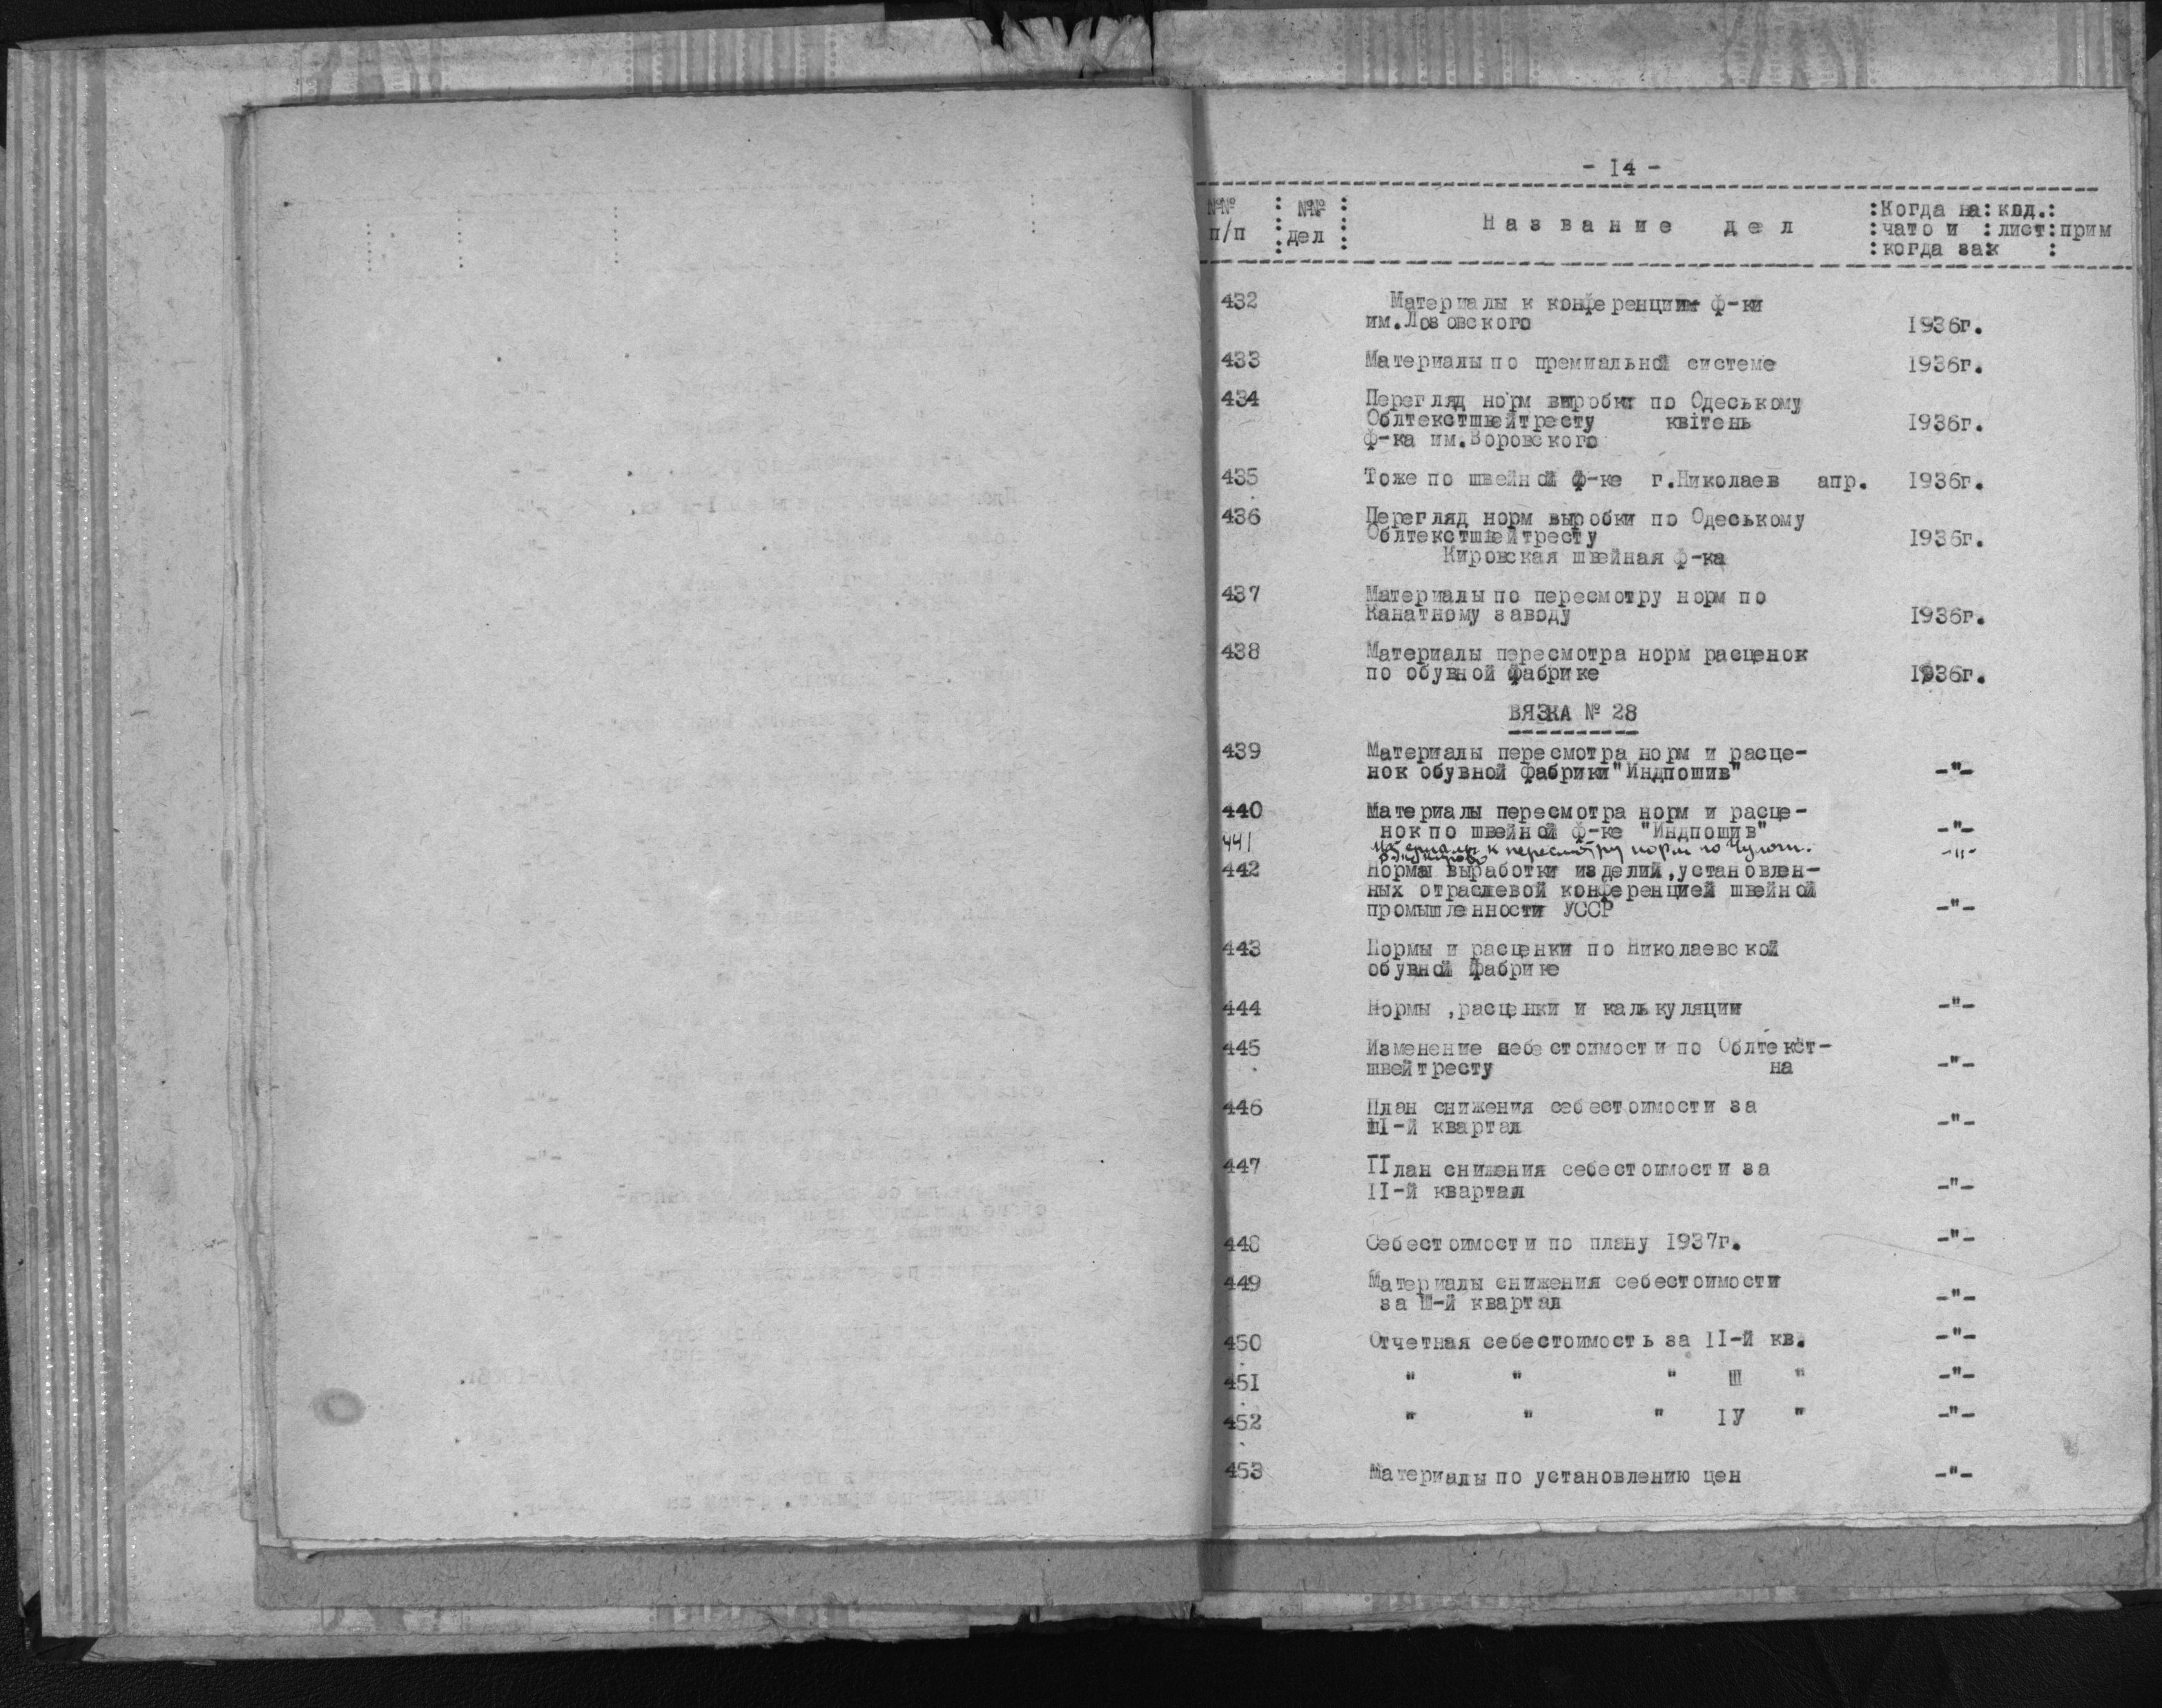 - I4 -
№№ : №№ : Название дел :Когда на:код.:
п/п : дел : :чато и :лист:прим
:когда зак :
432 Материалы к конференциим ф-ки
им.Лозовского 1936г.
433 Материалы по премиальной системе 1936г.
434 Перегляд норм выробки по Одеському
Облтекстшвейтресту квiтень 1936г.
ф-ка им.Воровского
435 Тоже по швейной ф-ке г.Николаев апр. 1936г.
436 Перегляд норм выробки по Одеському
Облтекстшвейтресту 1936г.
Кировская швейная ф-ка
437 Материалы по пересмотру норм по
Канатному заводу 1936г.
438 Материалы пересмотра норм расценок
по обувной фабрике 1936г.
ВЯЗКА № 28
439 Материалы пересмотра норм и расце-
нок обувной фабрики "Индпошив" -"-
440 Материалы пересмотра норм и расце-
нок по швейной ф-ке "Индпошив" -"-
441 Материалы к пересмотру норм по -"-
442 Нормы выработки изделий,установлен-
ных отраслевой конференцией швейной
промышленности УССР -"-
443 Нормы и расценки по Николаевской
обувной фабрике
444 Нормы ,расценки и калькуляции -"-
445 Изменение себестоимости по Облтекст-
швейтресту на -"-
446 План снижения себестоимости за
Ш-й квартал -"-
447 План снижения себестоимости за
II-й квартал -"-
448 Себестоимости по плану 1937г. -"-
449 Материалы снижения себестоимости
за Ш-й квартал -"-
450 Отчетная себестоимость за II-й кв. -"-
45I " " " Ш " -"-
452 " " " IУ " -"-
453 Материалы по установлению цен -"-